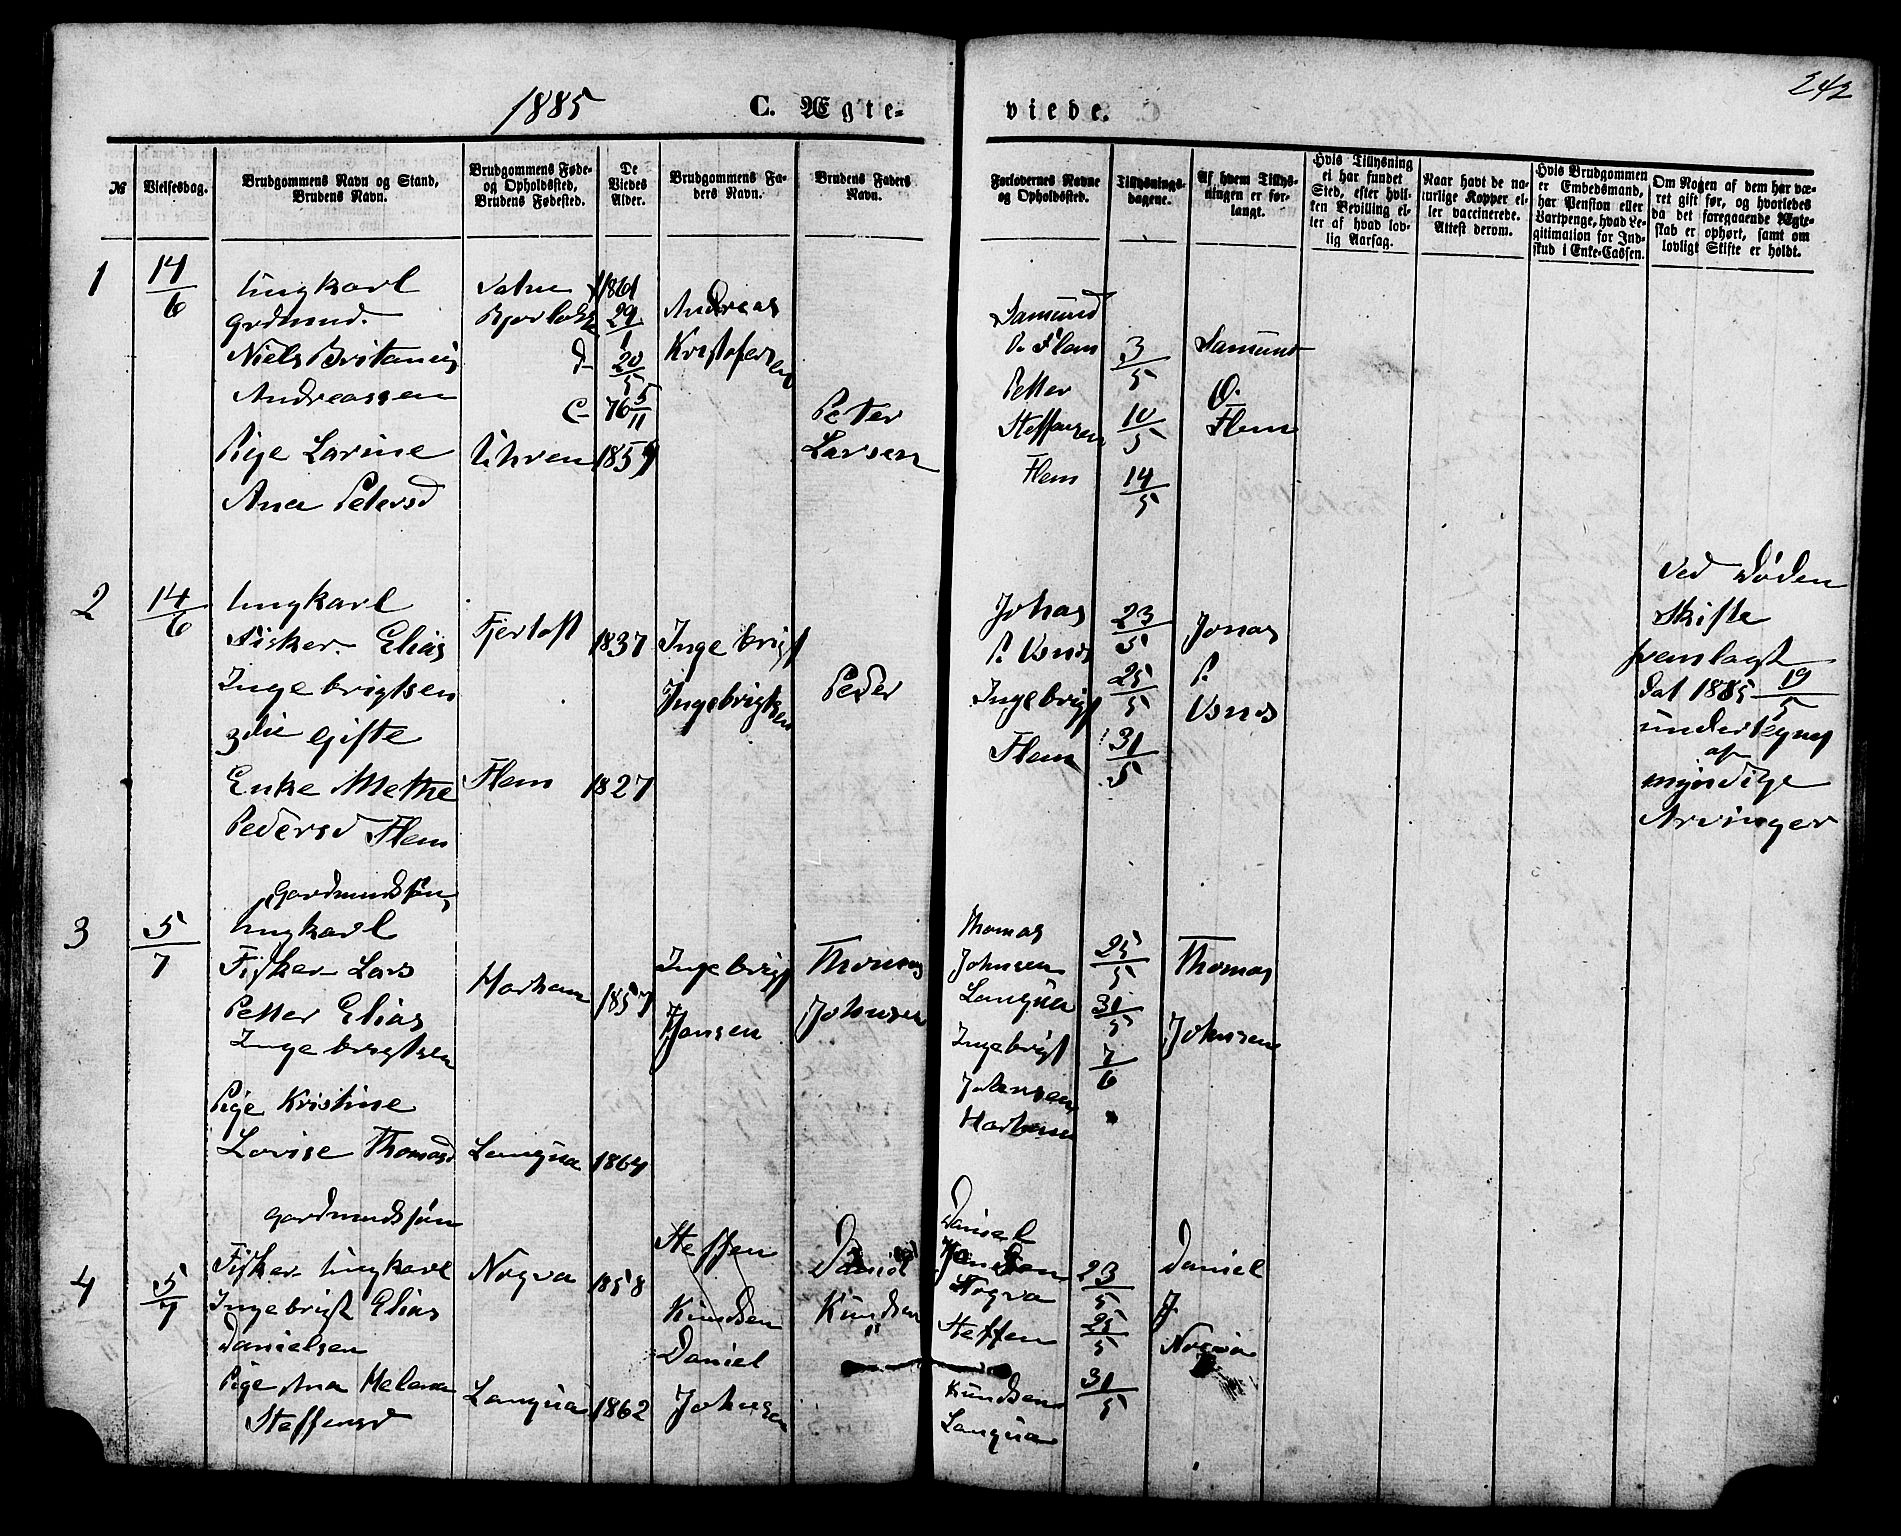 242
1885 C. Ægte- viede.
№
Vielsesdag.
Brudgommens Navn og Stand,
Brudens Navn.
Brudgommens Føde-
og Opholdssted,
Brudens Fødested.
De
Viedes
Alder.
Brudgommens Fa-
ders Navn.
Brudens Faders
Navn.
Forlovernes Navne
og Opholdssted.
Tillysnings-
dagene.
Af hvem Tillys-
ningen er for-
langt.
Hvis Tillysning
ei har fundet
Sted, efter hvil-
ken Bevilling el-
ler af hvad lov-
lig Aarsag.
Naar havt de na-
turlige Kopper el-
ler vaccinerede.
Attest derom.
Hvis Brudgommen
er Embedsmand,
har Pension eller
Vartpenge, hvad Le-
gitimation for Ind-
skud i Enke-Cassen.
Om Nogen af dem har væ-
ret gift før, og hvorledes
da det foregaaende Ægte-
skab er ophørt, samt om
lovligt Skifte er holdt.
1
14/6
Ungkarl
Grdmnd.
Niels Britanius
Andreassen
Pige Larine
Ana Petersd
Vatne
d-
C-
Uhren
1861
29/1
20/5
76 5/11
1859
Andreas
Kristofersen
Peter
Larsen
Samund
O. Flem
Petter
Steffensen
Flem
3/5
10/5
14/5
Samund
O.
Flem
2
14/6
Ungkarl
Fisker Elias
Ingebrigtsen
3die Gifte
Enke Methe
Pedersd Flem
Fjertoft
Flem
1837
1827
Ingebrigt
Ingebrigtsen
Peder
Johas
P. Usnes
Ingebrigt
Flem
23/5
25/5
31/5
Jonas
P.
Usnes
Ved Døden
Skifte
fremlagt
dat 1885 19/5
undertegnet
af
myndige
Arvinger
3
5/7
Gardmandssøn,
Ungkarl
Fisker Lars
Petter Elias
Ingebrigtsen
Pige Kristine
Lovise Thomasd
Harham
Longva
1857
1864
Ingebrigt
Jansen
Thomas
Johnsen
Thomas
Johnsen
Longva
Ingebrigt
Johansen
Harham
25/5
31/5
7/6
Thomas
Johnsen
4
5/7
Gardmandssøn
Fisker Ungkarl
Ingebrigt Elias
Danielsen
Pige Ana Helene
Steffensd
Nogva
Longva
1858
1862
Steffen
Knudsen
Daniel
Johnsen
Daniel
Knudsen
Daniel
Nogva
Steffen
Knudsen
Longva
23/5
25/5
31/5
Daniel
J
Nogva